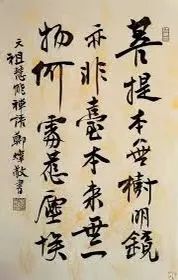 菩提本無樹明鏡
亦非臺本来無一
物何處惹塵埃
六祖慧能禪詩鄭敬書